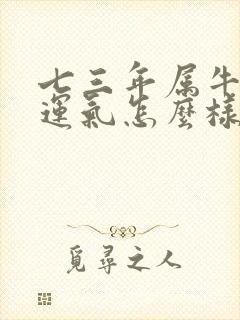 七三年属牛
運氣怎麼樣
覓尋之人